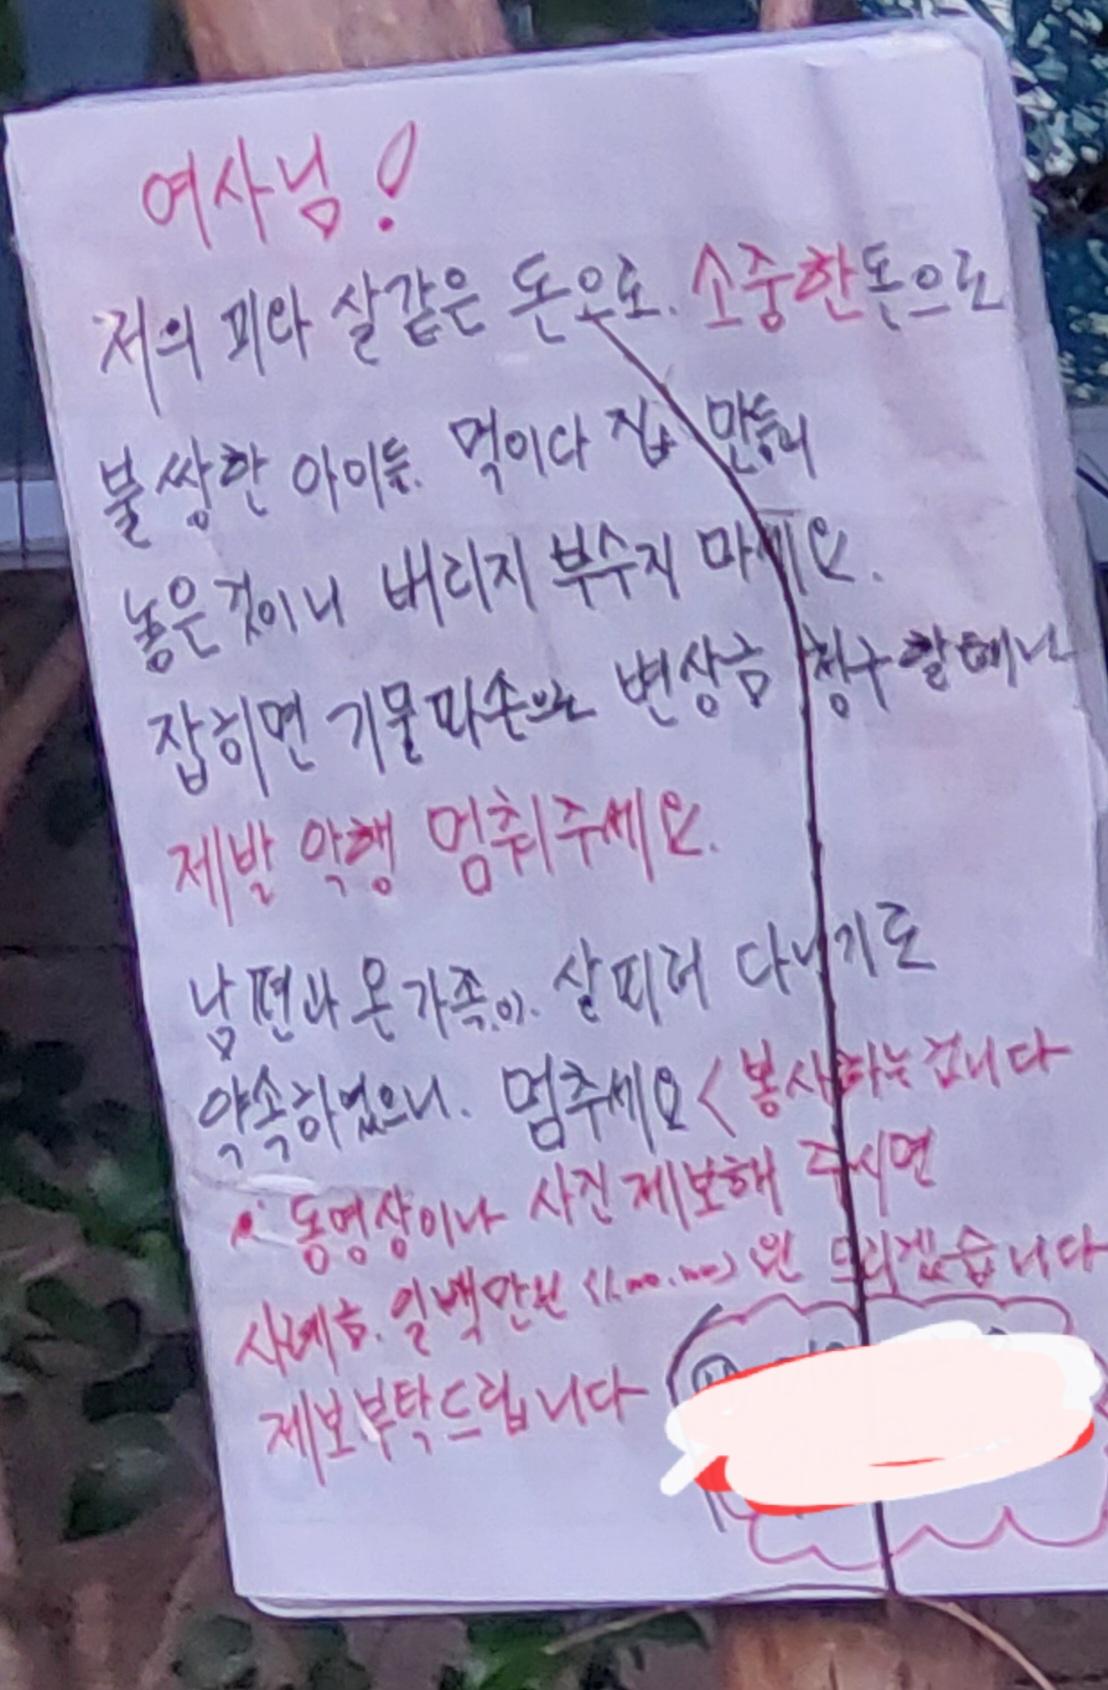 여사님!
저의 피와 살같은 돈으로. 소중한돈으로
불쌍한 아이들. 먹이다 집 만들어
놓은것이니 버리지 부수지 마세요.
잡히면 기물파손으로 변상금 청구할테니
제발 악행 멈춰주세요.
남편과 온가족이. 살피러 다니기로
약속하였으니. 멈추세요<봉사하는겁니다
동영상이나 사진제보해 주시면
사례금. 일백만원 (1.00.00)원 드리겠습니다
제보부탁드립니다